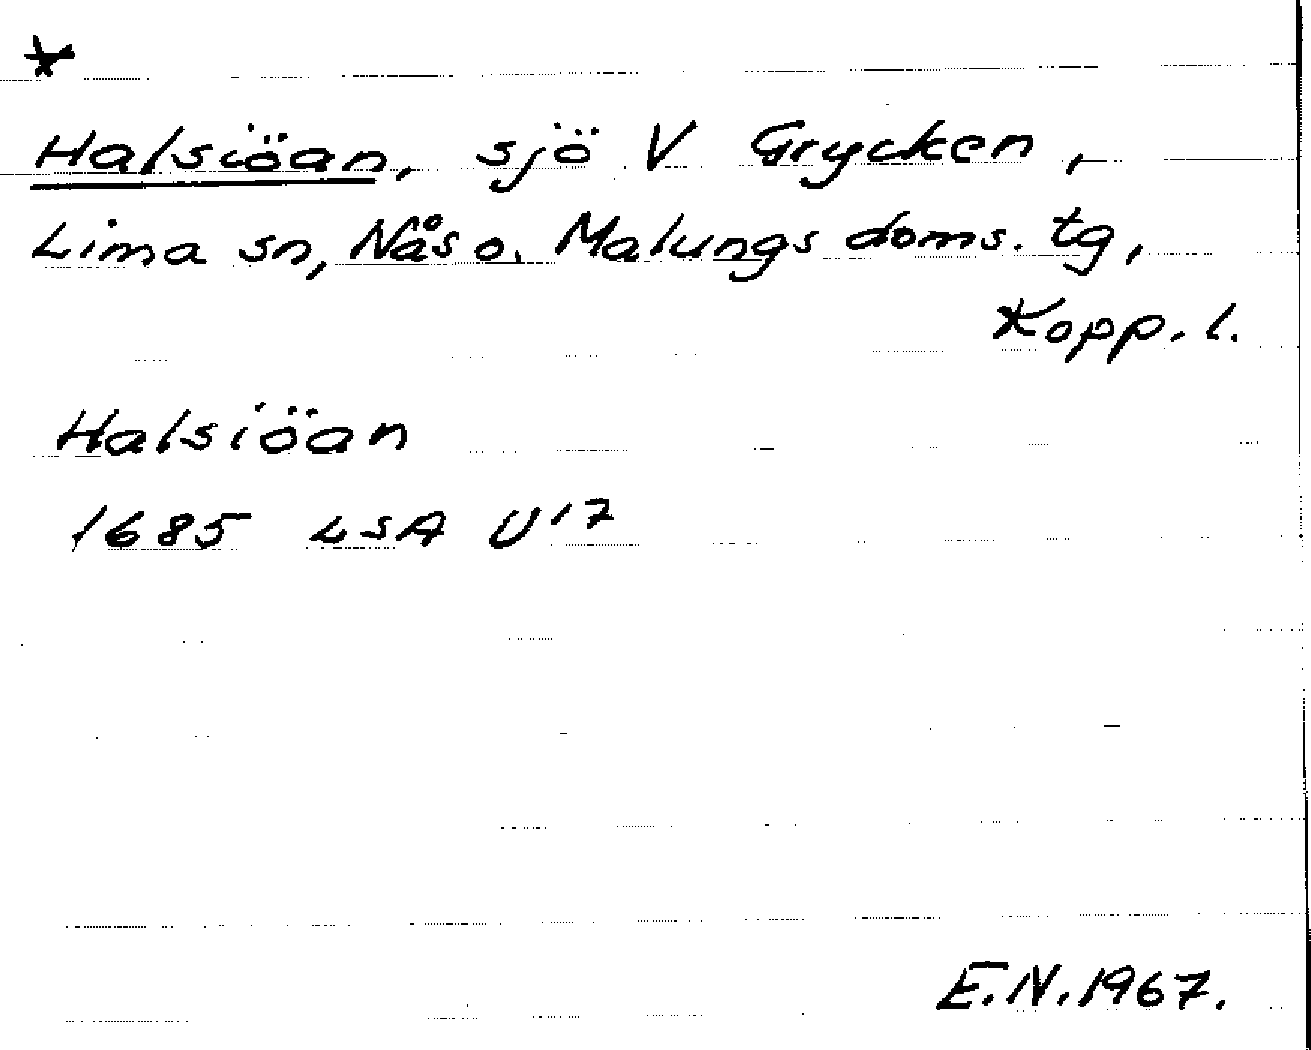 *
Halsiöan, sjö V Grycken,
Lima sn, Nås o. Malungs doms. tg,
Kopp. l.
Halsiöan
1685 LSA U17
E.N. 1967.